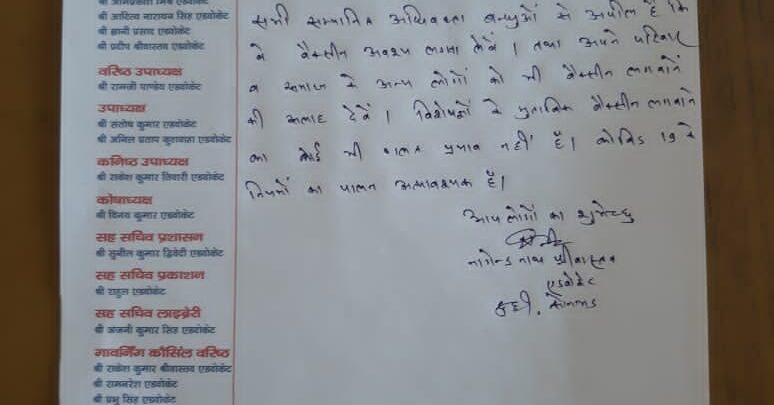 श्री आदित्य नारायण सिंह एडवोकेट
श्री ज्ञानी प्रसाद एडवोकेट
श्री प्रदीप श्रीवास्तव एडवोकेट
वरिष्ठ उपाध्यक्ष
श्री रामजी पाण्डेय एडवोकेट
उपाध्यक्ष
श्री संतोष कुमार एडवोकेट
श्री अनिल प्रताप कुशवाहा एडवोकेट
कनिष्ठ उपाध्यक्ष
श्री राकेश कुमार तिवारी एडवोकेट
कोषाध्यक्ष
श्री विनय कुमार एडवोकेट
सह सचिव प्रशासन
श्री सुनील कुमार द्विवेदी एडवोकेट
सह सचिव प्रकाशन
श्री राहुल एडवोकेट
सह सचिव लाइब्रेरी
श्री अजनी कुमार सिंह एडवोकेट
गावर्निंग कौंसिल वरिष्ठ
श्री राकेश कुमार श्रीवास्तव एडवोकेट
श्री रामनरेश एडवोकेट
श्री प्रभु सिंह एडवोकेट
सभी सम्मानित अधिवक्ता बन्धुओं से अपील है कि
वे वैक्सीन अवश्य लगवा लेवें । तथा अपने परिवार
व समाज के अन्य लोगों को भी वैक्सीन लगवाने
की सलाह देवें । विशेषज्ञों के मुताबिक वैक्सीन लगवाने
का कोई भी गलत प्रभाव नहीं है । कोविड 19 के
नियमों का पालन अत्यावश्यक है ।
आप लोगों का शुभेच्छु
नागेन्द्र नाथ श्रीवास्तव
एडवोकेट